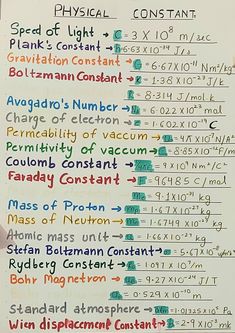 PHYSICAL CONSTANT.
Speed of light → C = 3 X 10⁸ m/sec
Plank's Constant → h = 6.63 X 10⁻³⁴ J/s
Gravitation Constant → G = 6.67 X 10⁻¹¹ Nm²/kg²
Boltzmann Constant → K = 1.38 X 10⁻²³ J/k
R = 8.314 J/mol.k
Avogadro's Number → = 6.022 X 10²³ mol⁻
Charge of electron → = 1.602 X 10⁻¹⁹ C
Permeability of vaccum → = 4π X 10⁻⁷ N/A²
Permitivity of vaccum → = 8.85 X 10⁻¹² F/m
Coulomb Constant → = 9 X 10⁹ Nm²/C²
Faraday Constant → F = 96485 C/mol
= 9.1 X 10⁻³¹ kg
Mass of Proton → mp = 1.67 X 10⁻²⁷ kg
Mass of Neutron → = 1.67 X 10⁻²⁷ kg
Atomic mass unit → = 1.66 X 10⁻²⁷ kg
Stefan Boltzmann Constant → = 5.67 X 10⁻⁸
Rydberg Constant → = 1.097 X 10⁷/m
Bohr Magnetron → = 9.27 X 10⁻²⁴ J/T
= 0.529 X 10⁻¹⁰ m
Standard atmosphere → atm = 1.01325 X 10⁵ Pa
Wien displacement Constant → b = 2.9 X 10⁻³ mk